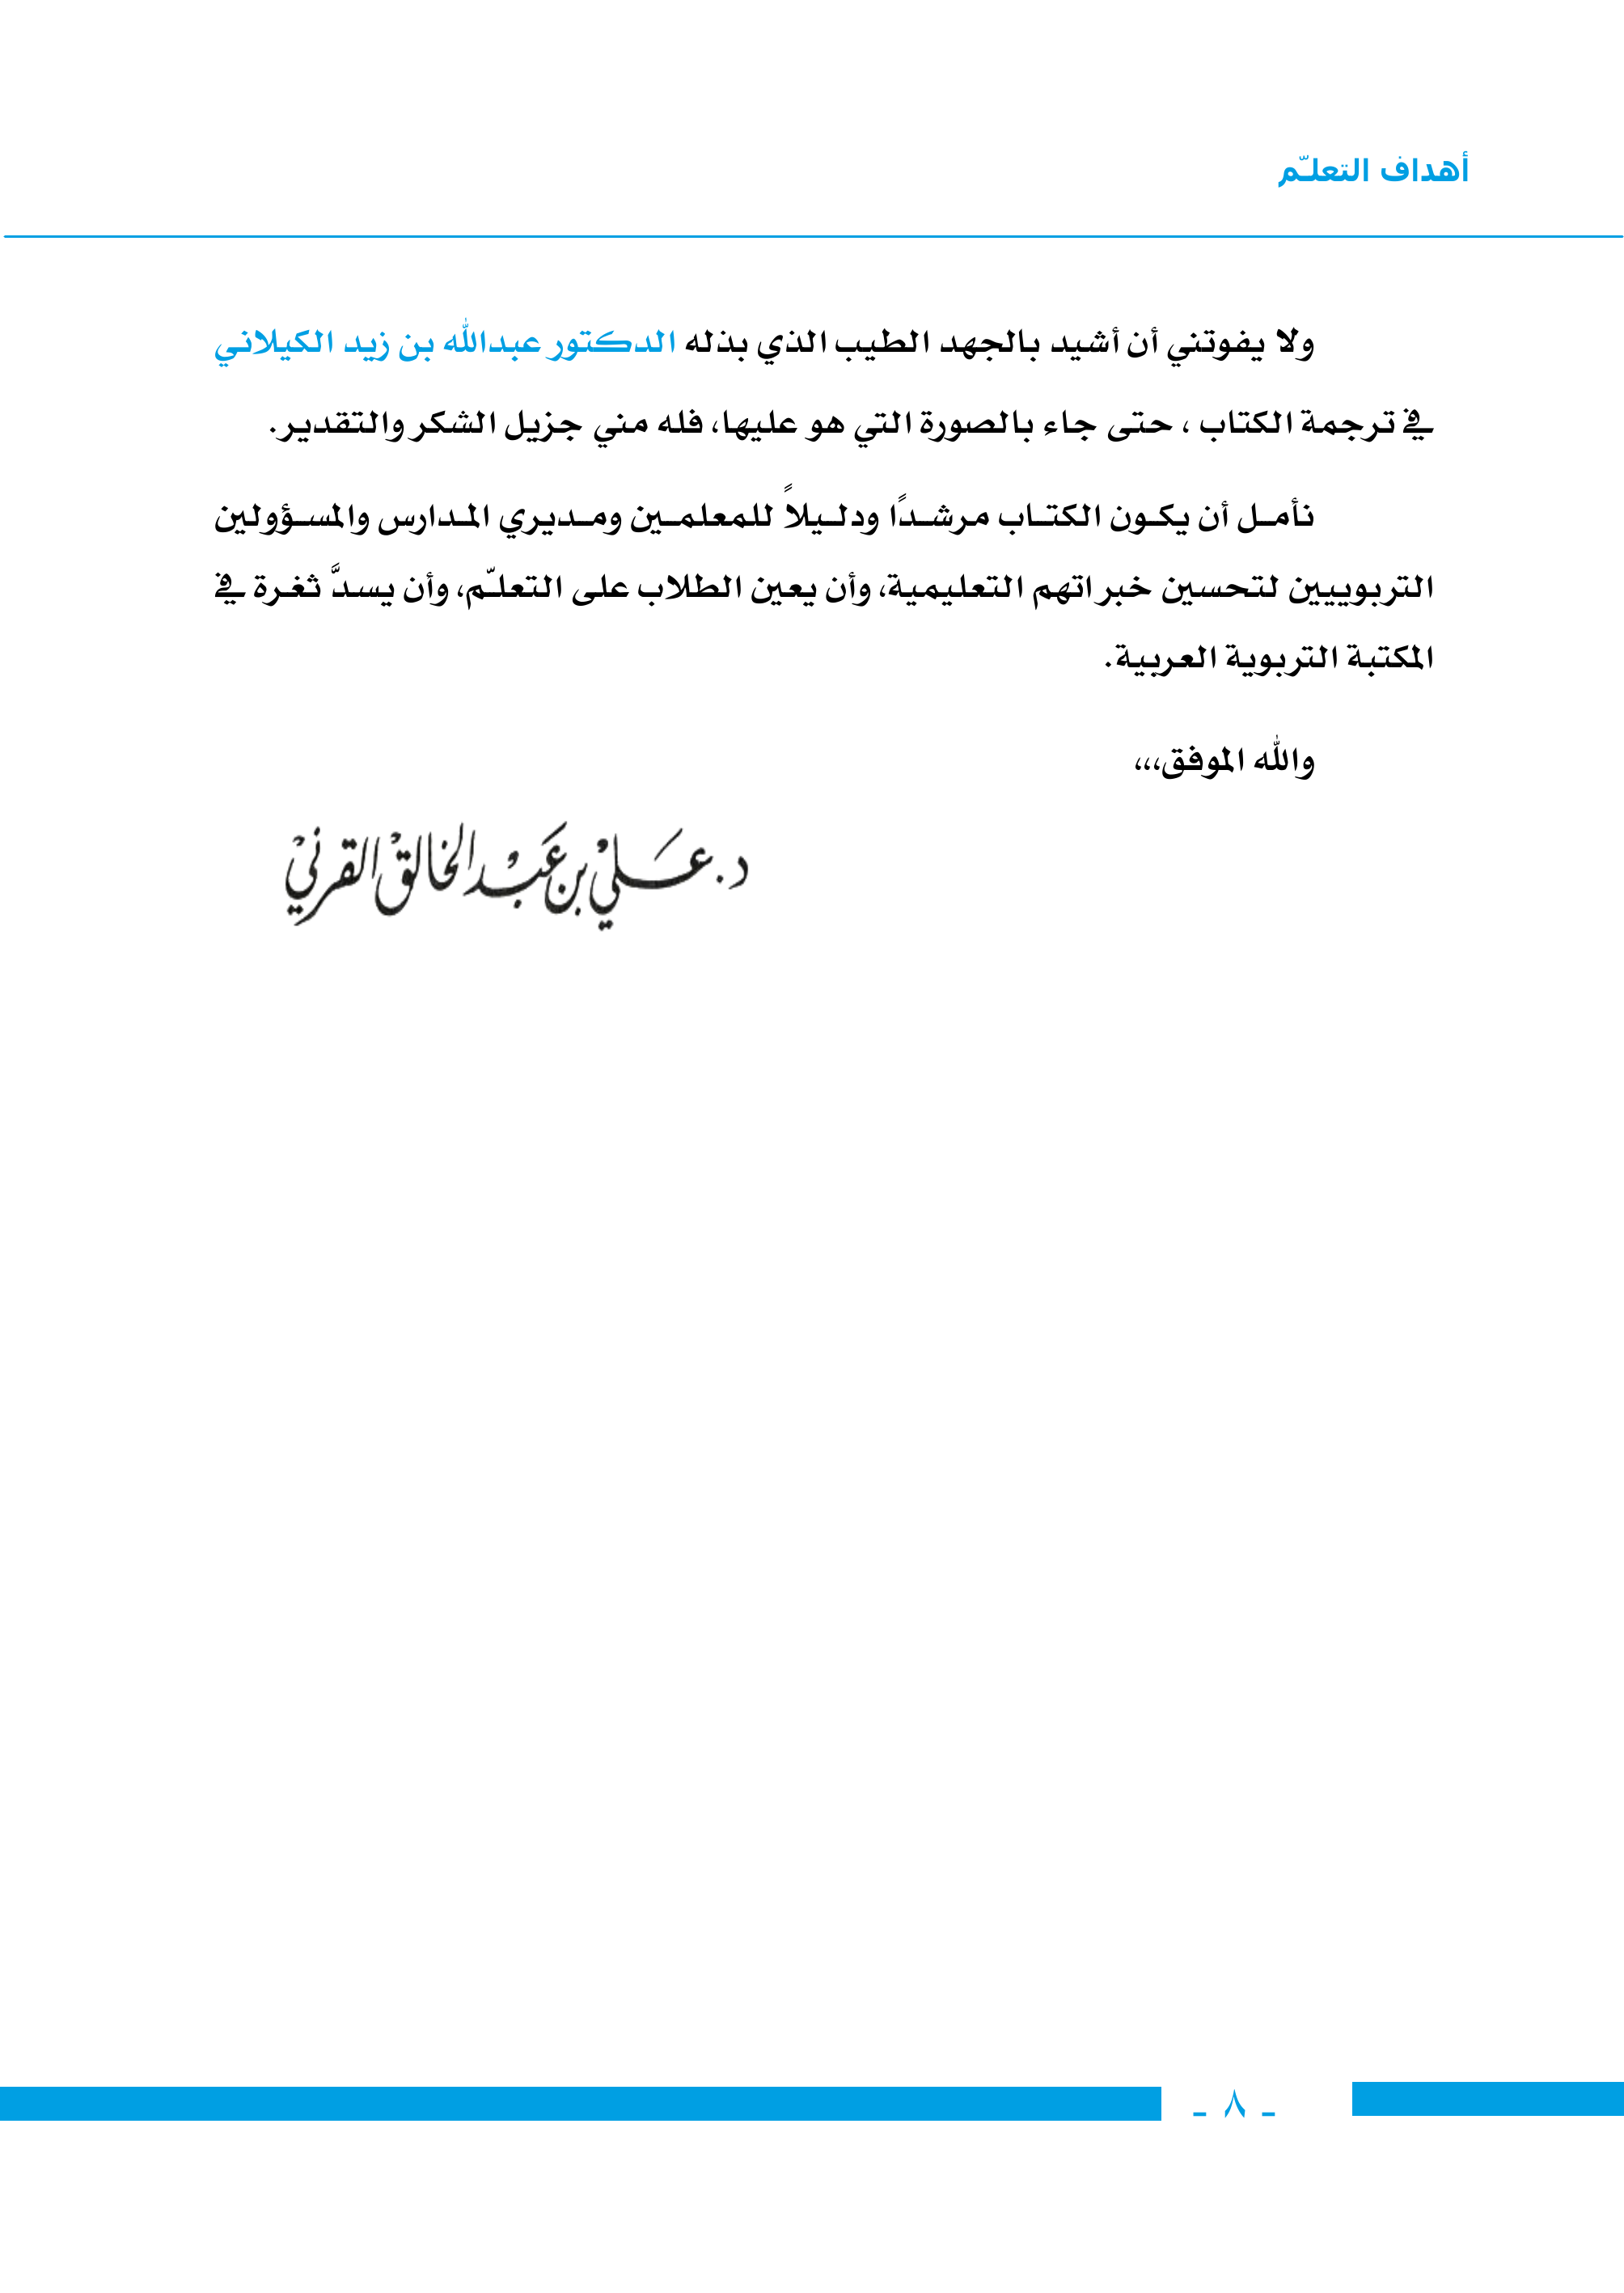 أهداف التعلـّم
ولا يفوتني أن أشيد بالجهد الطيب الذي بذله الدكتور عبدالله بن زيد الكيلاني
في ترجمة الكتاب ، حتى جاء بالصورة التي هو عليها، فله مني جزيل الشكر والتقدير.
نأمـل أن يكـون الكتـاب مرشـدًا ودلـيلاً للمعلمـين ومـديري المـدارس والمسـؤولين
التربوييين لتحسين خبراتهم التعليمية، وأن يعين الطلاب على التعلـّم، وأن يسدَّ ثغرة في
المكتبة التربوية العربية.
والله الموفق،،،
د. عَـلـيْ بن عَبْـد الخالقْ القرنيْ
- ٨ -